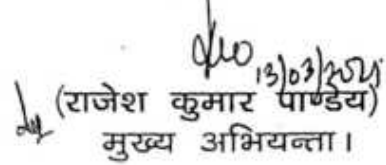 13/03/2024
(राजेश कुमार पाण्डेय)
मुख्य अभियन्ता।